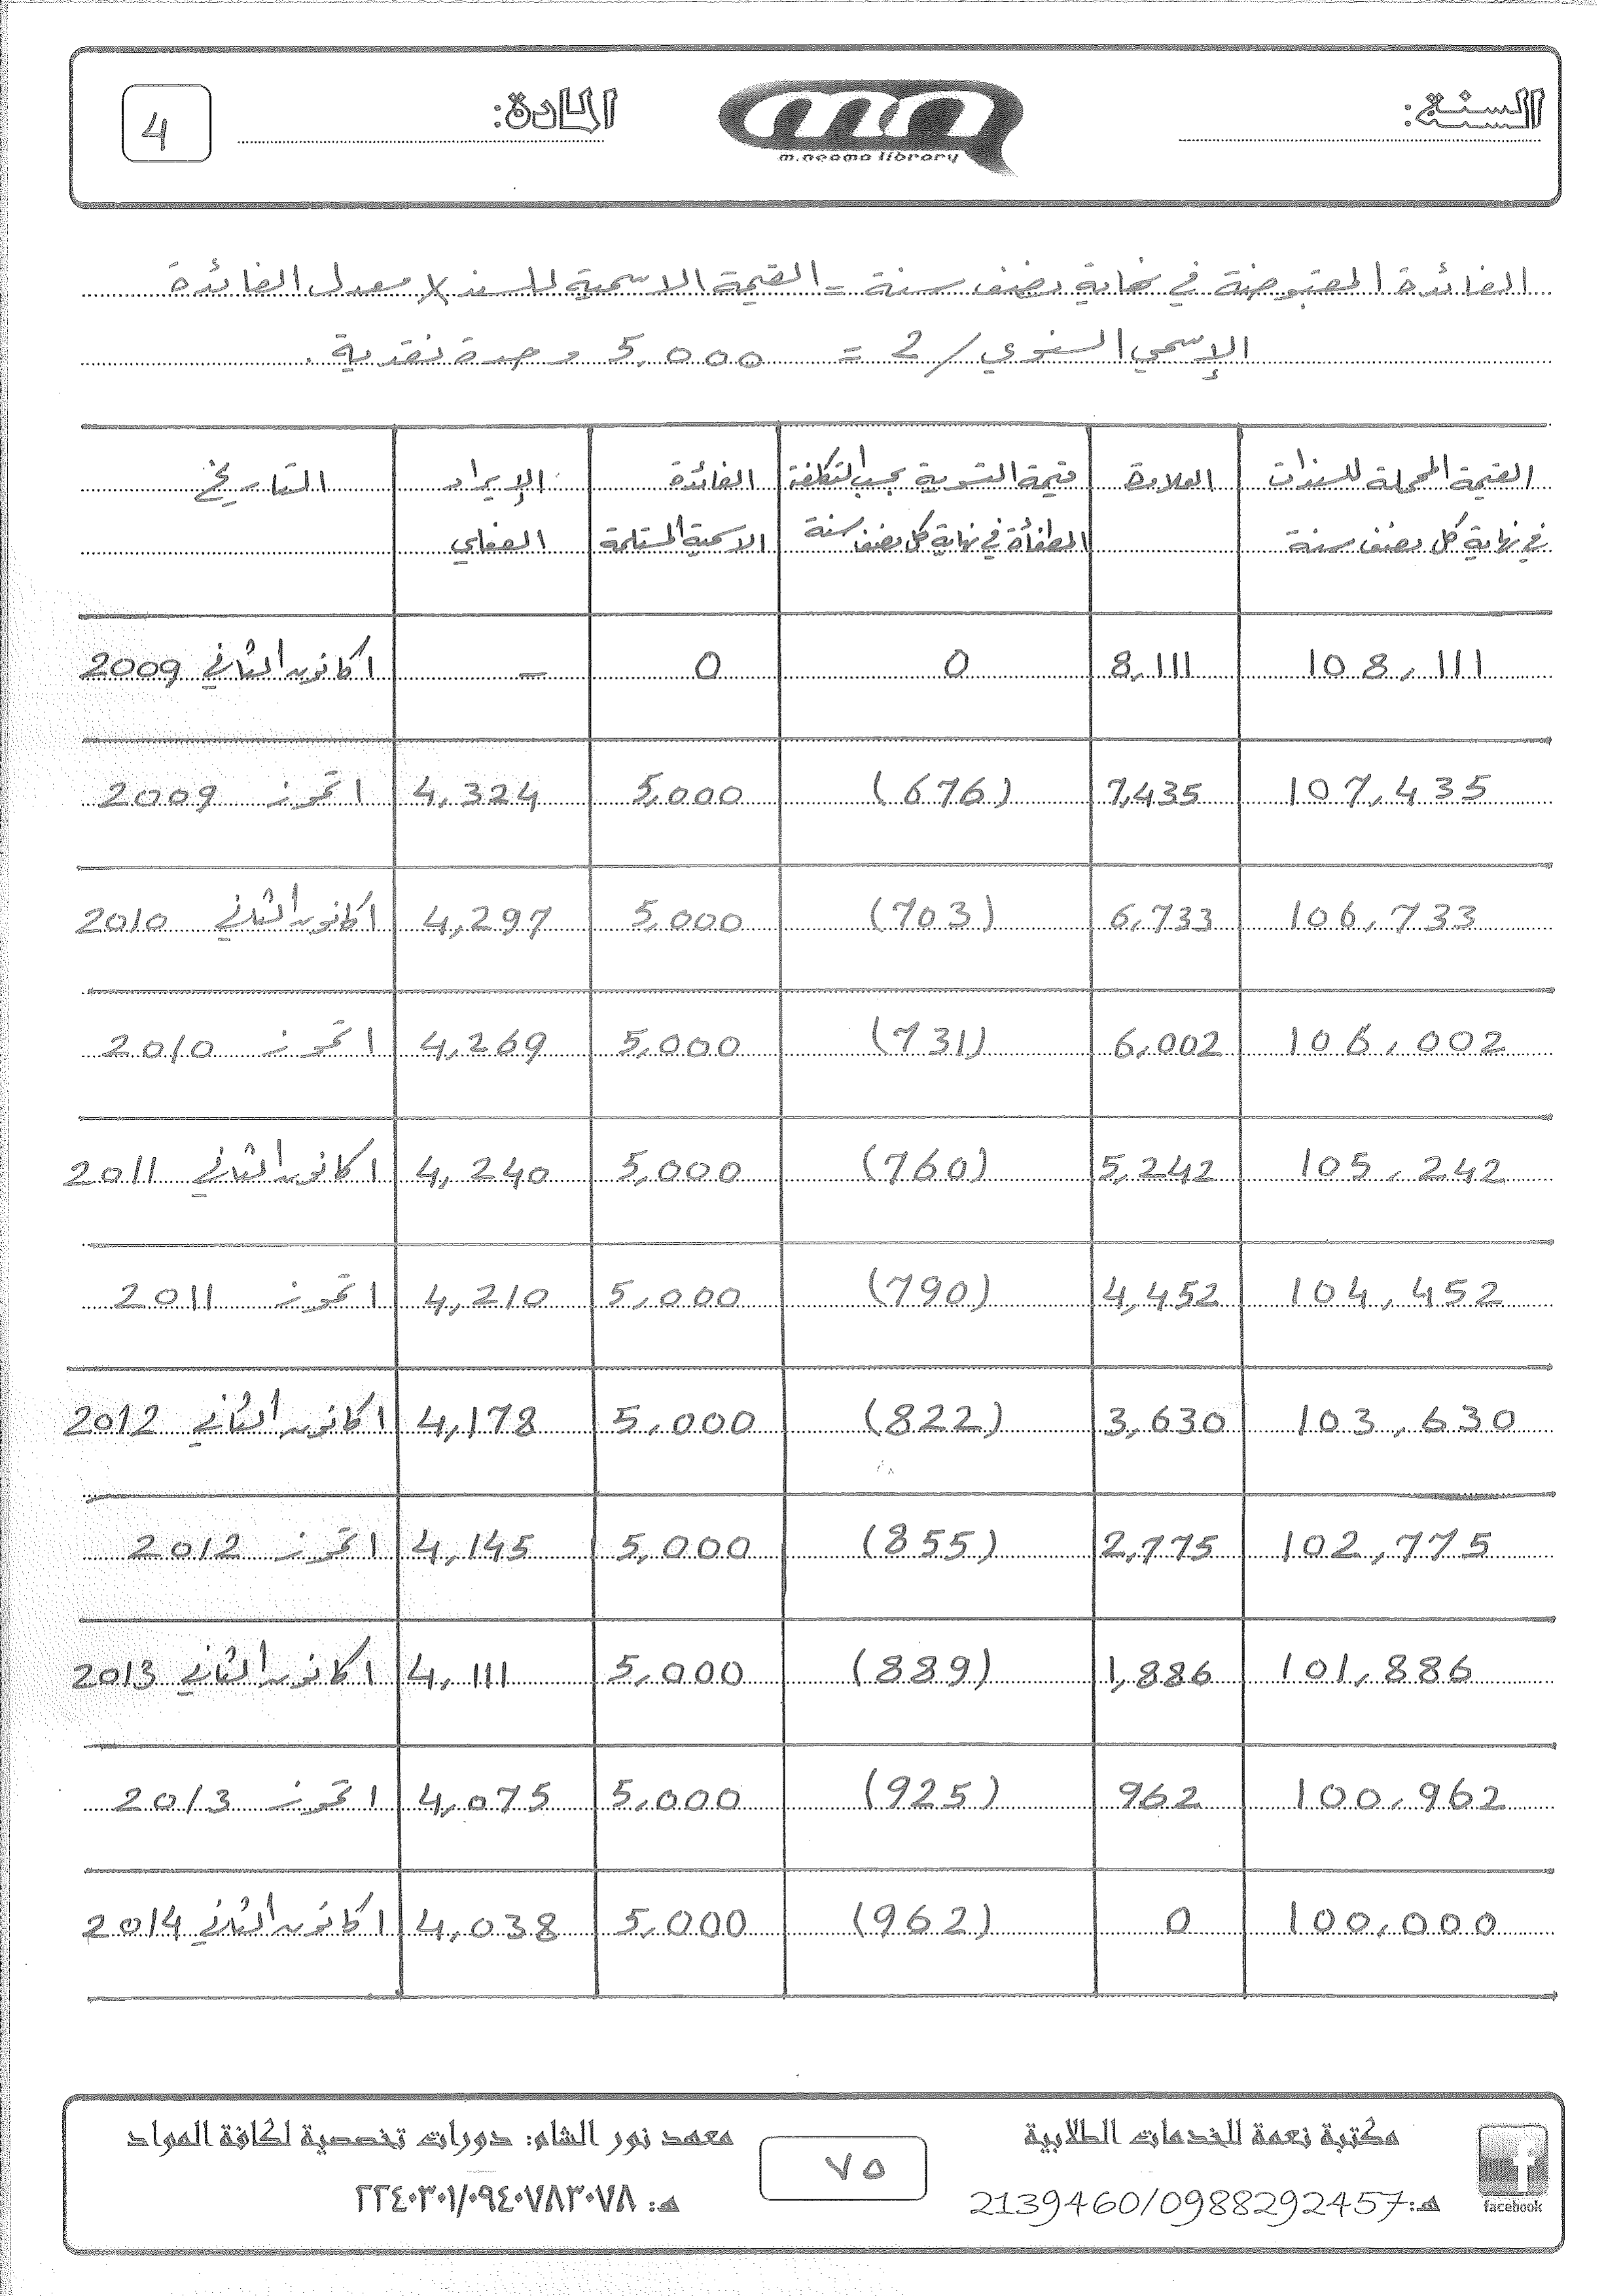 السنة:
m.neama library
المادة:
4
الفائدة المقبوضة في نهاية نصف سنة = القيمة الاسمية للسند × معدل الفائدة
الإسمي السنوي / 2 = 5,000 وحدة نقدية.
القيمة المحملة للسندات في نهاية كل نصف سنة | العلاوة | قيمة التسوية بحسب التكلفة المطفأة في نهاية كل نصف سنة | الفائدة الاسمية المستلمة | الإيراد الفعلي | التاريخ
108,111 | 8,111 | 0 | 0 | - | 1 كانون الثاني 2009
107,435 | 7,435 | (676) | 5,000 | 4,324 | 1 تموز 2009
106,733 | 6,733 | (703) | 5,000 | 4,297 | 1 كانون الثاني 2010
106,002 | 6,002 | (731) | 5,000 | 4,269 | 1 تموز 2010
105,242 | 5,242 | (760) | 5,000 | 4,240 | 1 كانون الثاني 2011
104,452 | 4,452 | (790) | 5,000 | 4,210 | 1 تموز 2011
103,630 | 3,630 | (822) | 5,000 | 4,178 | 1 كانون الثاني 2012
102,775 | 2,775 | (855) | 5,000 | 4,145 | 1 تموز 2012
101,886 | 1,886 | (889) | 5,000 | 4,111 | 1 كانون الثاني 2013
100,962 | 962 | (925) | 5,000 | 4,075 | 1 تموز 2013
100,000 | 0 | (962) | 5,000 | 4,038 | 1 كانون الثاني 2014
facebook
مكتبة نعمة للخدمات الطلابية
هـ: 2139460/0988292457
٧٥
معهد نور الشام: دورات تخصصية لكافة المواد
هـ: ٢٢٤٠٣٠١/٠٩٤٠٧٨٣٠٧٨